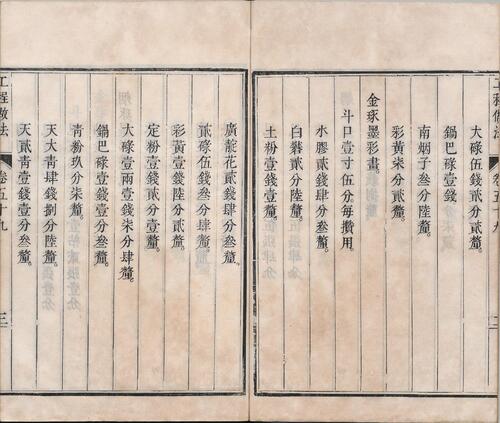 大碌伍錢貳分叁釐。
鍋巴碌壹錢。
南烟子叁分陸釐。
彩黃柒分貳釐。
金琢墨彩畫。
斗口壹寸伍分每攢用。
水膠貳錢肆分。
白礬貳分陸釐。
土粉壹錢壹釐。
廣靛花貳錢肆分肆釐。
貳碌伍錢叁分肆釐。
彩黃壹錢陸分貳釐。
定粉壹錢貳分壹釐。
大碌壹兩壹錢柒分肆釐。
鍋巴碌壹錢壹分叁釐。
青粉玖分柒釐。
天大青肆錢捌分陸釐。
天貳青壹錢壹分叁釐。
工程做法
卷五十九
三